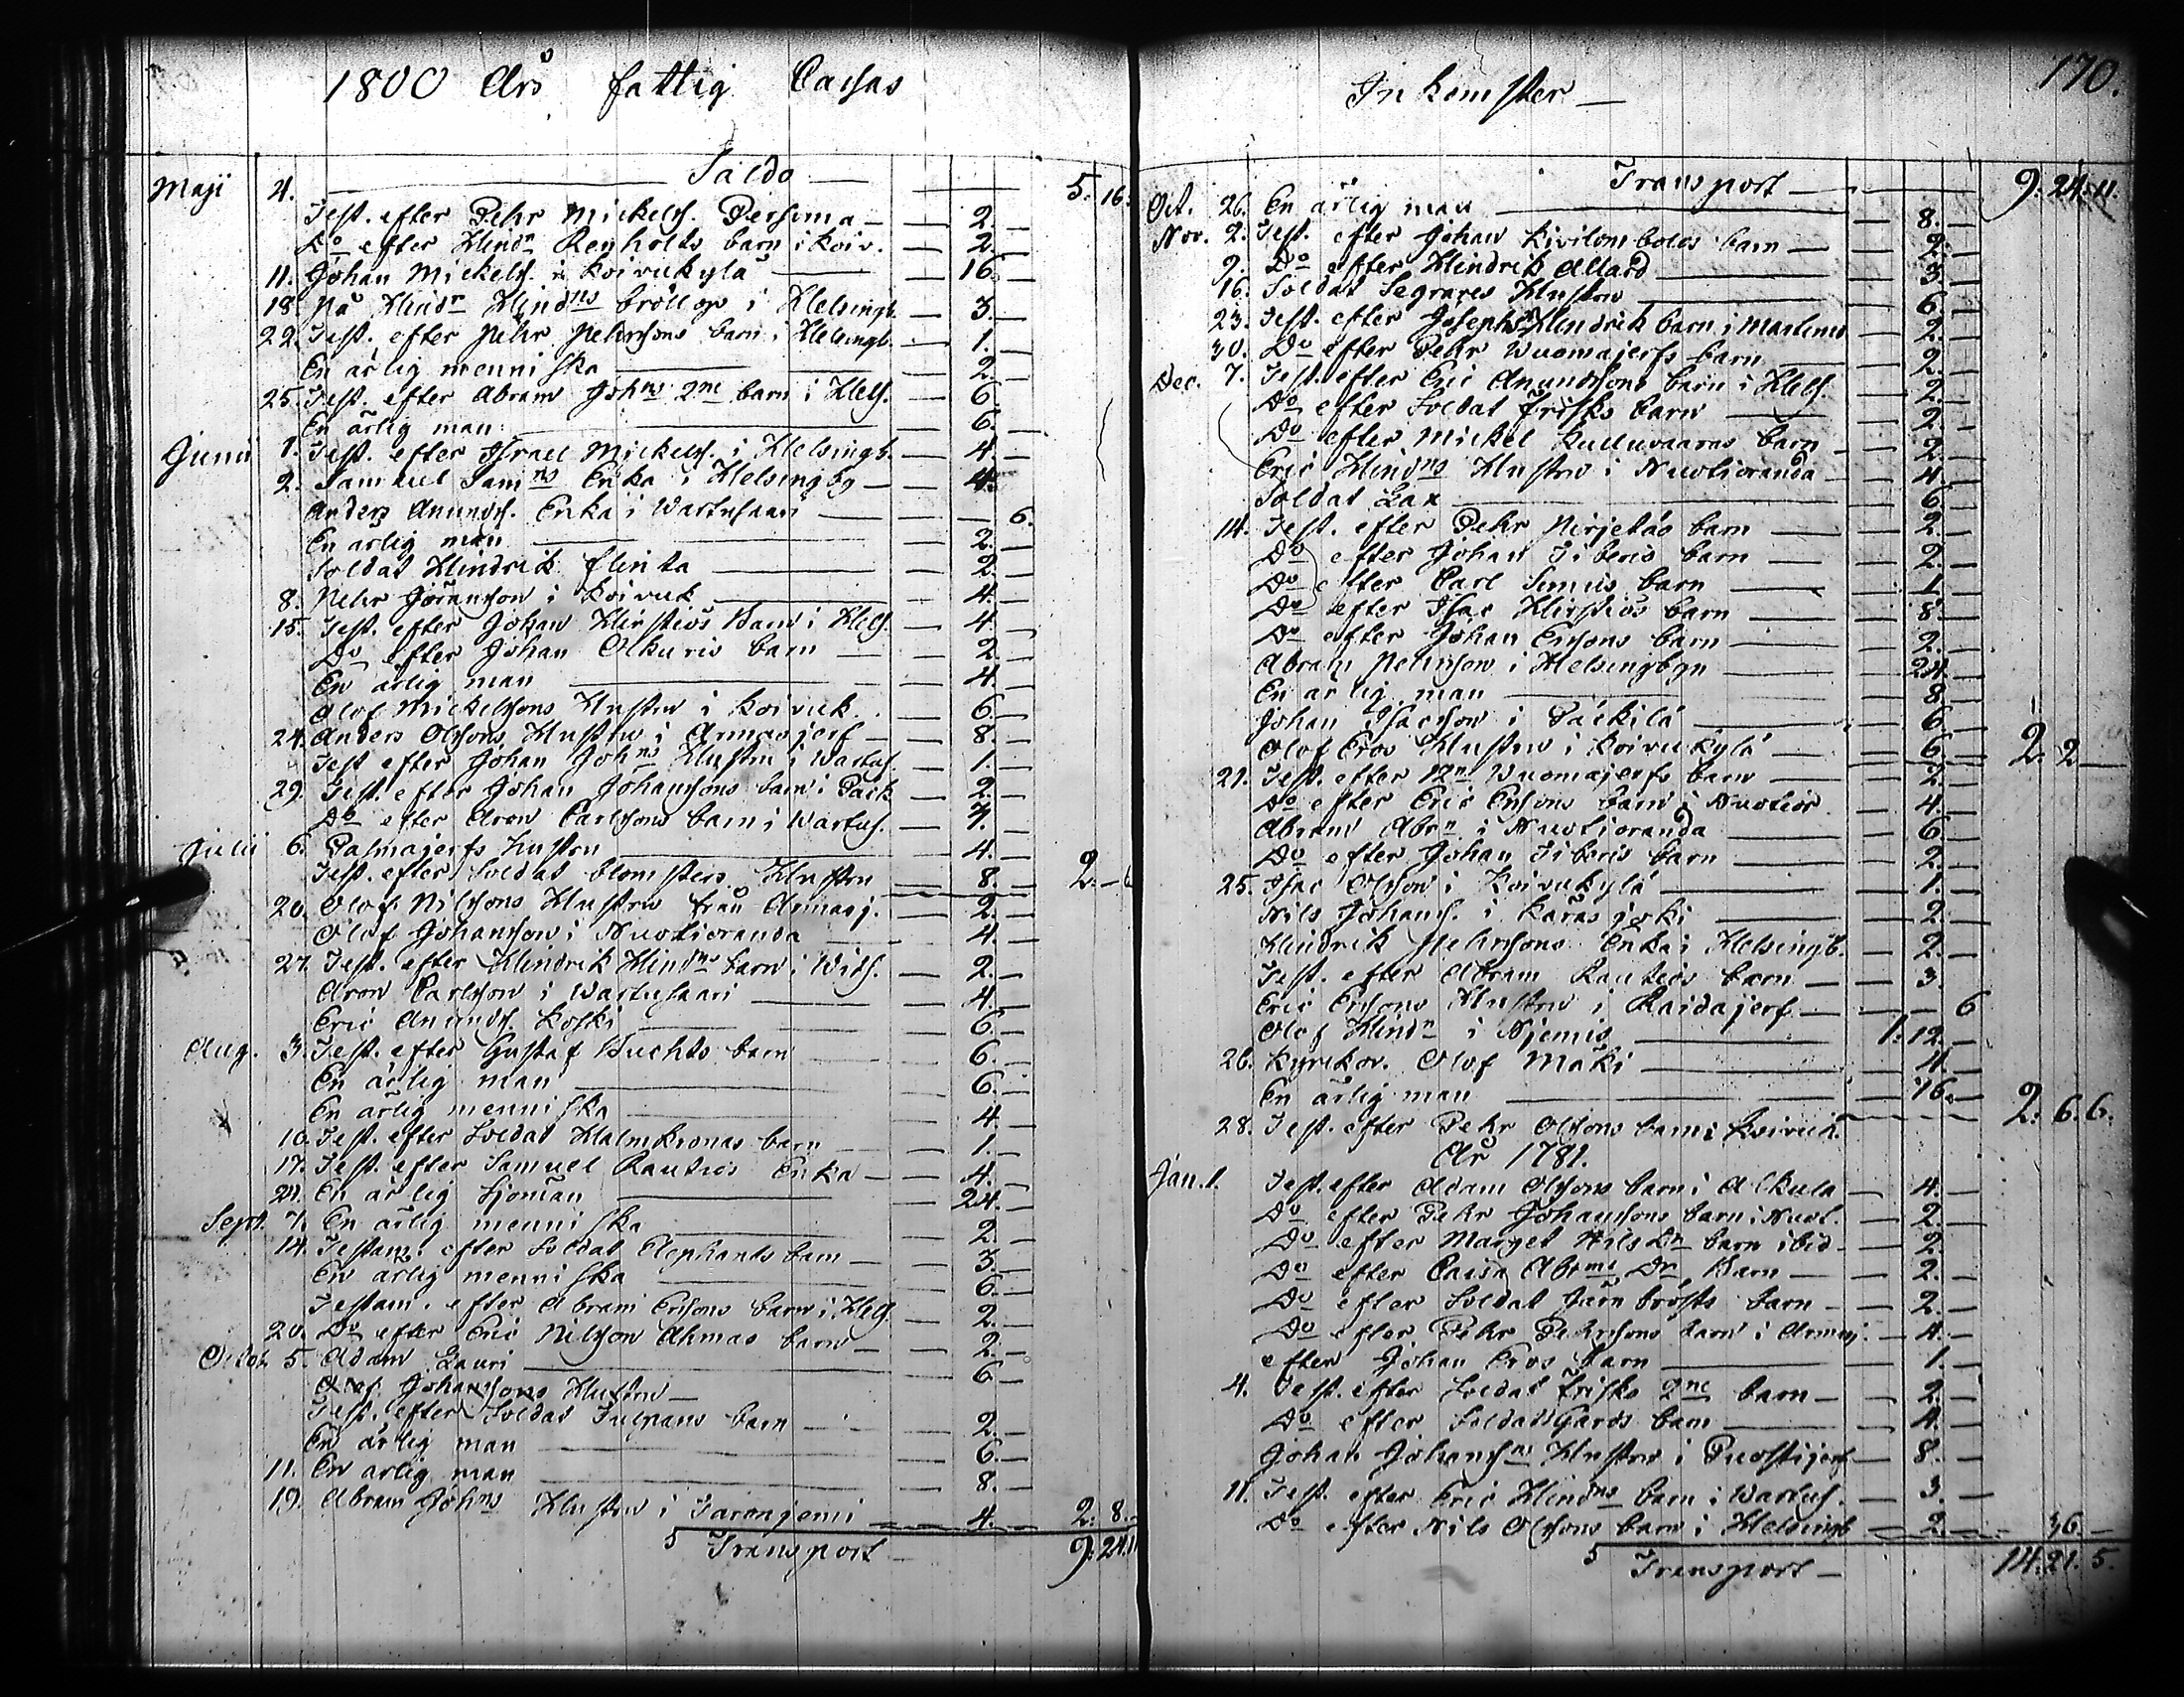 1800 Års fattig Cassas
Saldo — 5. 16.
Maji 4. Test. efter Pehr Mickels. Persoma — 2. —
Do efter Hindr Renholts barn i Koiv. — 2. —
11. Johan Mickels. i Koivukylä — 16. —
18. På Hindr Hindrns bröllop i Helsingb. — 3. —
22. Test. efter Pehr Pehrssons barn i Helsingb. — 1. —
En ärlig menniska — 2. —
25. Test. efter Abram Johns 2ne barn i Hels. — 6. —
En ärlig man — 6. —
Junii 1. Test. efter Israel Mickels. i Helsingb. — 4. —
2. Samuel Samns Enka i Helsingbg — 4. —
Anders Anunds. Enka i Wartusaari — 6.
En ärlig man — 2. —
Soldat Hindrik Flinta — 2. —
8. Pehr Göransson i Koivuk — 4. —
15. Test. efter Johan Hirstiös Barn i Hels. — 4. —
Do efter Johan Alkuris barn — 2. —
En ärlig man — 4. —
Olof Mickelssons Hustru i Koivuk. — 6. —
24. Anders Olssons Hustru i Armasjerf — 8. —
Test efter Johan Johns Hustru i Wartus. — 1. —
29. Test. efter Johan Johanssons barn i Päck — 2. —
Do efter Aron Carlssons barn i Wartus. — 7. —
Julii 6. Palmajerfs hustru — 4. —
Test. efter Soldat Blomsters Hustru — 8. — 2. —
20. Olof Nilssons Hustru från Armasj. — 2. —
Olof Johansson i Nuotioranda — 4. —
27. Test. efter Hindrik Hindrns barn i Wits. — 2. —
Aron Carlsson i Wartusaari — 4. —
Eric Anunds. Koski — 6. —
Aug. 3. Test. efter Gustaf Buchts barn — 6. —
En ärlig man — 6. —
En ärlig menniska — 4. —
10. Test. efter Soldat Malmkronas barn — 1. —
17. Test. efter Samuel Rautios Enka — 4. —
24. En ärlig Sjöman — 24. —
Sept. 7. En ärlig menniska — 2. —
14. Testam. efter Soldat Elephants barn — 3. —
En ärlig menniska — 6. —
Testam. efter Abram Erssons barn i Hels. — 2. —
20. Do efter Eric Nilsson Ahmas barn — 2. —
Octob. 5. Adam Lauri — 6. —
Olof Johanssons Hustru —
Test. efter Soldat Tulpans barn — 2. —
En ärlig man — 6. —
11. En ärlig man — 8. —
19. Abram Johns Hustru i Jaronjemi — 4. — 2. 8. —
Transport — 9. 24. 11
Inkomster —
170.
Transport — 9. 24. 11.
Oct. 26. En ärlig man — 8. —
Nov. 2. Test. efter Johan Kivilombolos barn — 2. —
9. Do efter Hindrik Allard — 3. —
16. Soldat Segrares Hustru — 6. —
23. Test. efter Josephs Hindrik barn i Martimo — 2. —
30. Do efter Pehr Wuomajerfs barn — 2. —
Dec. 7. Test. efter Eric Anundssons barn i Hels. — 2. —
Do efter Soldat Frisks barn — 2. —
Do efter Mickel Kulluvaaras barn — 2. —
Eric Hindns Hustru i Nuotioranda — 4. —
Soldat Lax — 6. —
14. Test. efter Pehr Nirjetäs barn — 2. —
Do efter Johan Tiberis barn — 2. —
Do efter Carl Simus barn — 1. —
Do efter Isac Hirstiös barn — 8. —
Do efter Johan Erssons barn — 2. —
Abram Pehrsson i Helsingbgn — 24. —
En ärlig man — 8. —
Johan Isacsson i Päckilä — 6. —
Olof Eros Hustru i Koivukylä — 6. — 2. 2 —
21. Test. efter Wuomajerfs barn — 2. —
Do efter Eric Erssons barn i Nuotior. — 4. —
Abram Abrn i Nuotioranda — 6. —
Do efter Johan Tiberis barn — 2. —
25. Isac Olsson i Koivukylä — 1. —
Nils Johans. i Karasjoki — 2. —
Hindrik Pehrssons Enka i Helsingb. — 2. —
Test. efter Abram Rautios barn — 3.
Eric Erssons Hustru i Raidajerf — 6
Olof Hindn i Njemis — 1. 12. —
26. Kyrckov. Olof Mäki — 4. —
En ärlig man — 16. — 2. 6. 6.
28. Test. efter Pehr Olssons barn i Koivuk.
År 1781.
Jan. 1. Test. efter Adam Olssons barn i Alkula — 4. —
Do efter Pehr Johanssons barn i Nuot. — 2. —
Do efter Marget Nils Dr barn ibid — 2. —
Do efter Caisa Abrms Dr Barn — 2. —
Do efter Soldat Järnbrösts barn — 2. —
Do efter Pehr Pehrssons barn i Armasj. — 4. —
efter Johan Eros barn — 1. —
4. Test. efter Soldat Frisks 2ne barn — 2. —
Do efter Soldat Gards barn — 4. —
Johan Johansns Hustru i Puostijerf — 8. —
11. Test. efter Eric Hindns barn i Wartus. — 3. —
Do efter Nils Olssons barn i Helsingb — 2. — 36. —
Transport — 14. 21. 5.